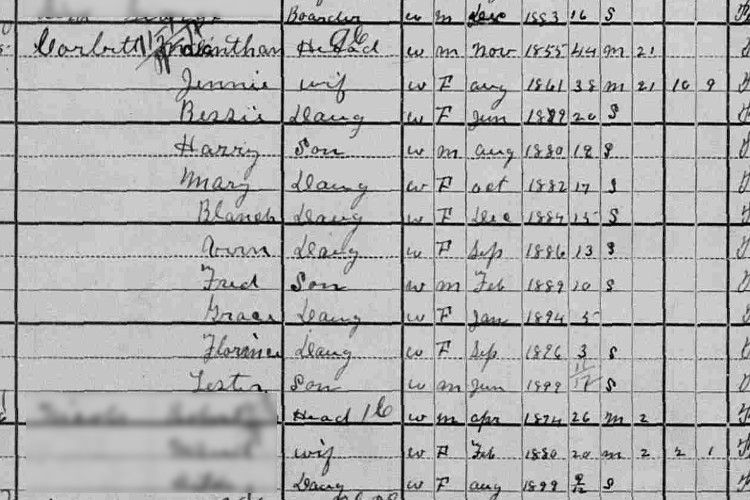 Boarder w m Dec 1883 16 S
Corbett Head w m Nov 1855 44 m 21
Jennie wif w F aug 1861 38 m 21 10 9
Bessie Daug w F Jun 20 S
Harry Son w m aug 1880 18 S
Mary Daug w F oct 1882 17 S
Blanch Daug w F Dec 1884 15 S
Daug w F Sep 1886 13 S
Fred Son w m Feb 1889 10 S
Grace Daug w F Jan 1894 5
Florince Daug w F Sep 1896 3 S
Lester Son w m Jun 1899 S
Head w m apr 1874 26 m 2
wif w F Feb 1880 20 m 2 2 1
Daug w F aug 1899 9/12 S